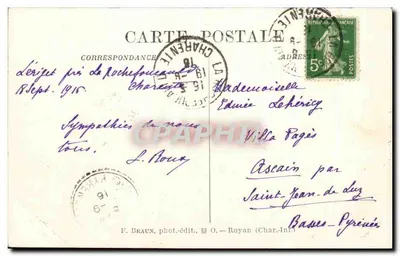 CARTE POSTALE
CORRESPONDANCE
ADRESSE
Lériget près La Rochefoucauld
Charente
18 Sept. 1916
Sympathies de nous
tous.
L. Roux
Mademoiselle
Edmée Lehéricy
Villa Pagès
Ascain par
Saint-Jean de Luz
Basses-Pyrénées
5c
POSTES
CHARENTE
F. BRAUN, phot.-édit.
O.—Royan (Char.-Inf.)